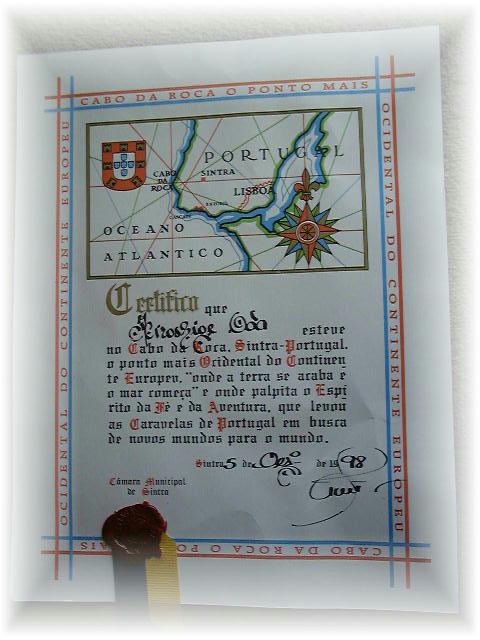 CABO DA ROCA O PONTO MAIS
OCIDENTAL DO CONTINENTE EUROPEU
PORTUGAL
CABO
DA
ROCA
SINTRA
LISBOA
ESTORIL
CASCAIS
OCEANO
ATLANTICO
Certifico que
Oda esteve
no Cabo da Roca, Sintra-Portugal,
o ponto mais Ocidental do Continen
te Europeu, "onde a terra se acaba e
o mar começa" e onde palpita o Espí
rito da Fé e da Aventura, que levou
as Caravelas de Portugal em busca
de novos mundos para o mundo.
Sintra 5 de de 1998
Câmara Municipal
de Sintra
CABO DA ROCA O PO AIS
OCIDENTAL DO CONTINENTE EUROPEU